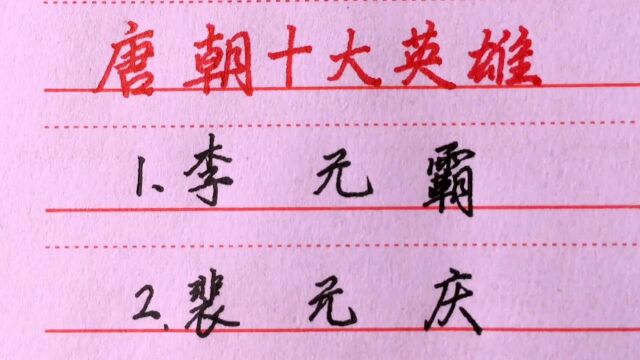 唐朝十大英雄
1、李元霸
2、裴元庆